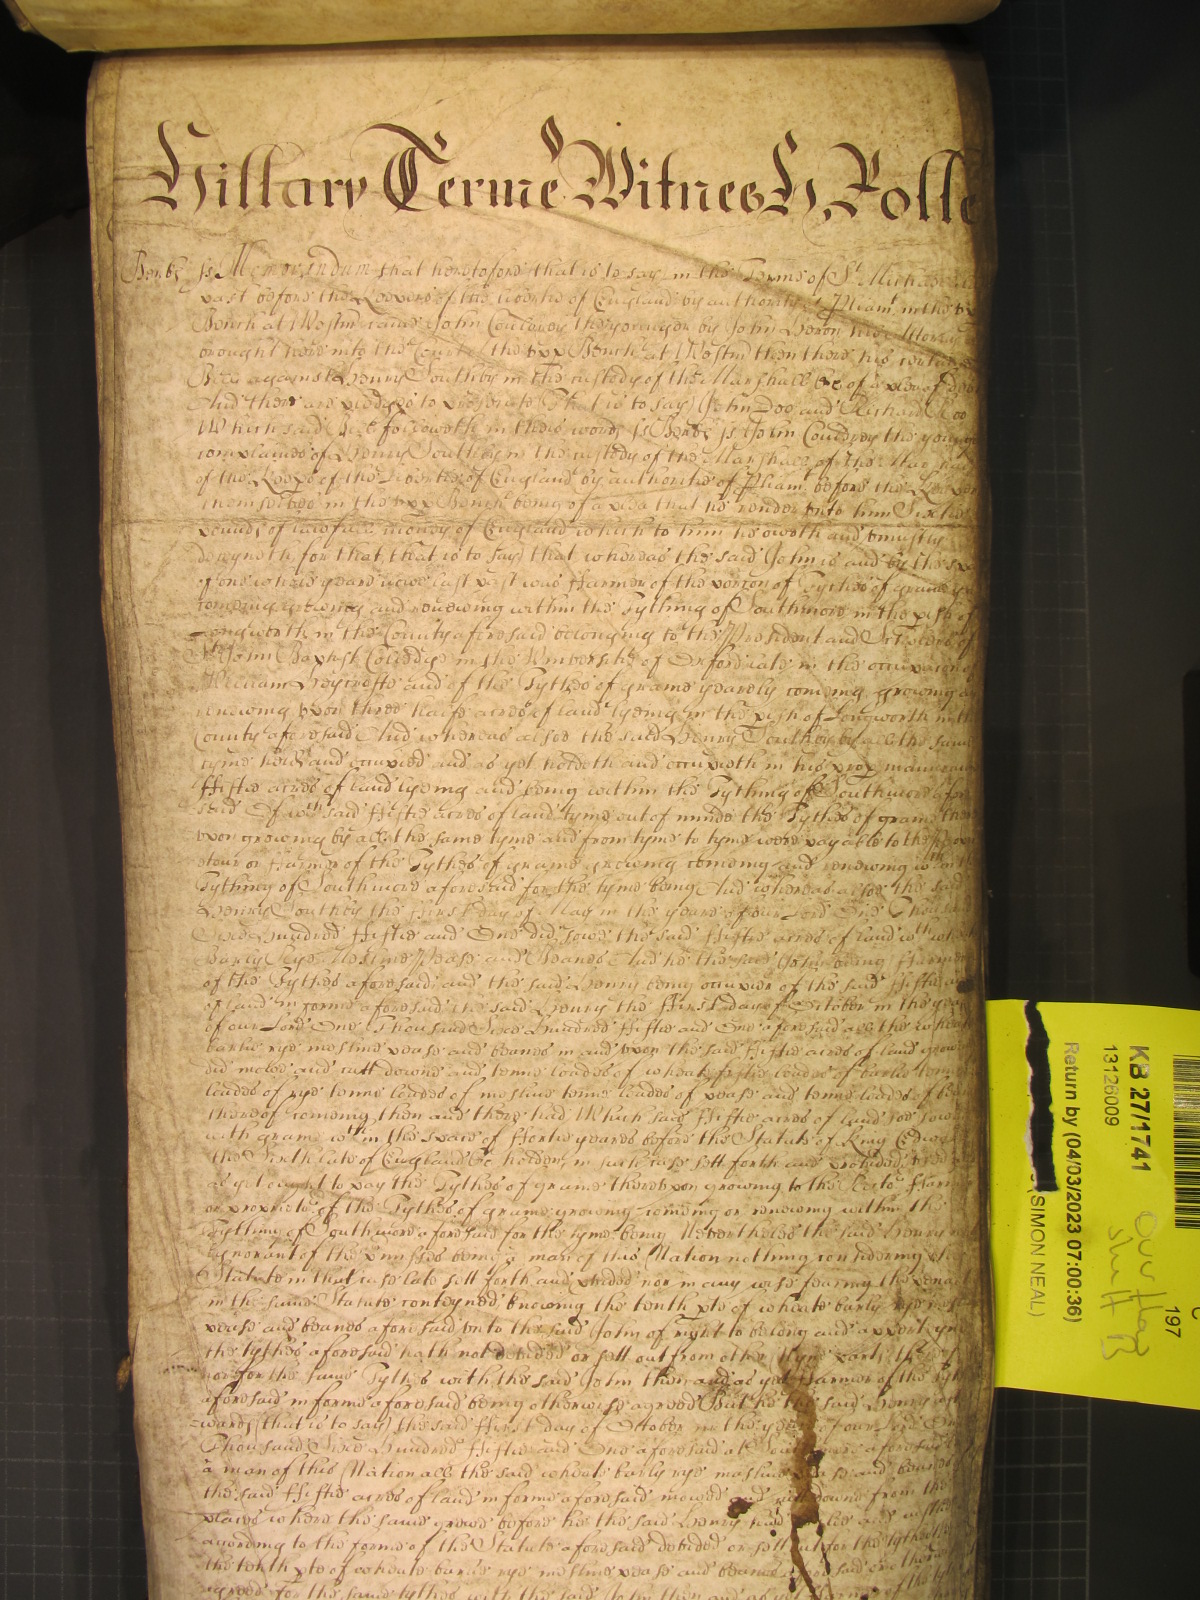 Hillary Terme Witnes H. Rolle
Berks ss Memorandum that heretofore that is to say in the Terme of St Michael
past before the Keepers of the libertie of England by authoritie of Pliamt in the upp
Bench at Westm came John Couldrey the younger by John Heron his Attorny
brought here into the Court of the upp Bench at Westm then there his certaine
Bill against Henry Southby in the custody of the Marshall &c of a plea of debt
And there are pledges to prosecute That is to say John Doo and Richard Roo
Which said Bill followeth in theis words ss Berks ss John Couldrey the younger
complaines of Henry Southby in the custody of the Marshall of the Marshal
of the Keeps of the liberties of England by authoritie of Pliamt before the Keepers
themselves in the upp Bench being of a plea that he render unto him Sixtie
pounds of lawfull money of England which to him he oweth and uniustly
deteyneth for that, that is to say that whereas the said John is and by the space
of one whole yeare nowe last past was ffarmer of the porcon of Tythes of graine
comeing groweing and renewing within the Tything of Southmore in the pish of
Longworth in the County aforesaid belonging to the President and Schollers of
St John Baptist Colledge in the Universitie of Oxford late in the occupacon of
William and of the Tythes of graine yearely comeing growing and
renewing upon three halfe acres of land lyeing in the pish of Longworth in the
County aforesaid And whereas alsoe the said Henry Southby by all the same
tyme held and occupied and as yet holdeth and occupieth in his prop
ffiftie acres of land lyeing and being within the Tything of Southmore afore
said Of wch said ffiftie acres of land tyme out of minde the Tythes of graine there
upon growing by all the same tyme and from tyme to tyme were payable to the
or ffarmer of the Tythes of graine growing comeing and renewing wthin the
Tything of Southmore aforesaid for the tyme being And whereas alsoe the said
Henry Southby the first day of May in the yeare of our Lord One Thousand
Sixe Hundred ffiftie and One did sowe the said ffiftie acres of land wth wheate
Barly Rye Mesline Pease and Beanes And he the said John being ffarmer
of the Tythes aforesaid and the said Henry being occupier of the said ffiftie acres
of land in forme aforesaid he the said Henry the first day of October in the yeare
of our Lord One Thousand Sixe Hundred ffiftie and One aforesaid all the wheate
barlie rye mesline pease and beanes in and upon the said ffiftie acres of land growing
did mowe and cutt downe and tenne loades of wheate ffiftie loades of barlie tenne
loades of rye tenne loades of mesline tenne loades of pease and tenne loades of beanes
thereof comeing then and there had Which said ffiftie acres of land soe sowen
with graine wthin the space of ffortie yeares before the Statute of King Edward
the Sixth late of England &c holden in such case sett forth and provided
as yet ought to pay the Tythes of graine thereupon growing to the Rector ffarmer
or proprietor of the Tythes of graine growing comeing or renewing within the
Tything of Southmore aforesaid for the tyme being Neverthelesse the said Henry not
ignorant of the premisses being a man of this Nation nothing considering the
Statute in that case late sett forth and pvided nor in any wise fearing the penaltie
in the same Statute conteyned knowing the tenth pte of wheate barly rye mesline
pease and beanes aforesaid unto the said John of right to belong and apperteyne
the tythes aforesaid hath not devided or sett out from other
nor for the same Tythes with the said John then and as yet ffarmer of the Tythes
aforesaid in forme aforesaid being otherwise agreed But he the said Henry after
wards that is to say the said first day of October in the yeare of our Lord One
Thousand Sixe Hundred ffiftie and One aforesaid at Southmore aforesaid
a man of this Nation all the said wheate barly rye mesline pease and beanes
the said ffiftie acres of land in forme aforesaid mowed and cutt downe from the
places where the same grewe before he the said Henry had
according to the forme of the Statute aforesaid devided or sett out for the tythe
the tenth pte of wheate barlie rye mesline pease and beanes aforesaid
agreed for the same tythes with the said John then and as yet ffarmer of the
KB 27/1741
13126009
Return by (04/03/2023 07:00:36)
(SIMON NEAL)
197